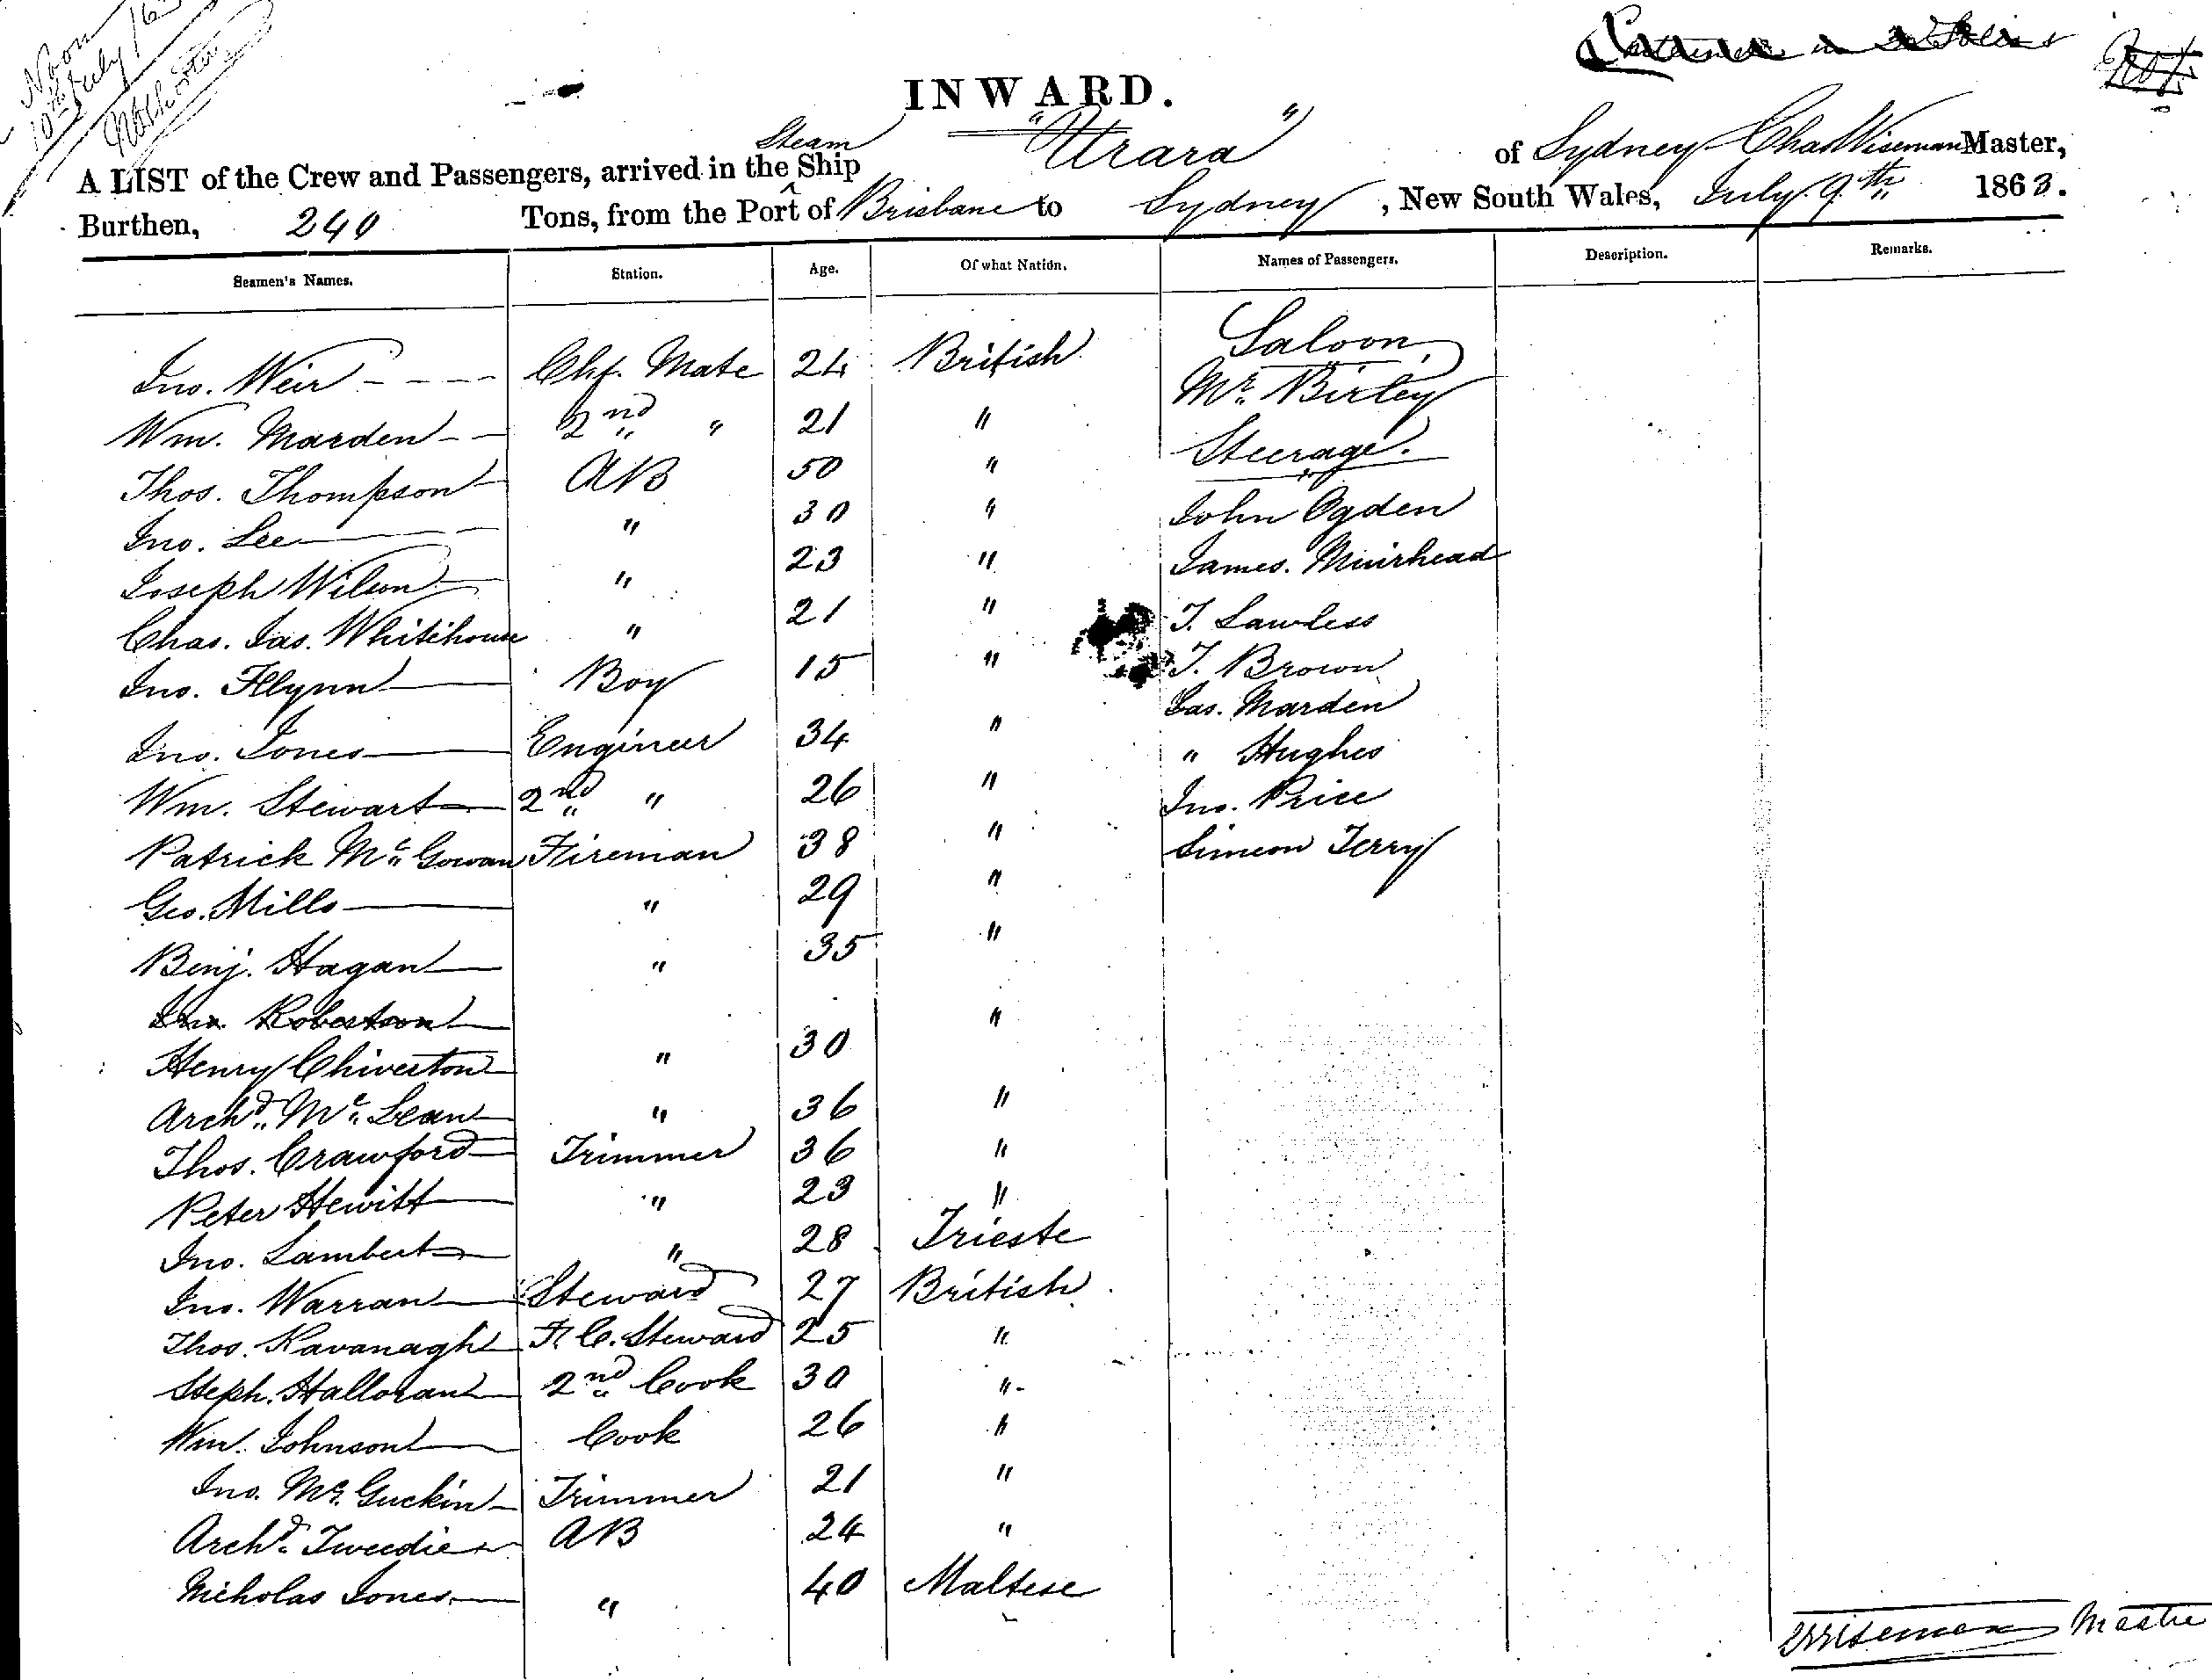 Noon
10th July /63
INWARD.
Steam
A LIST of the Crew and Passengers, arrived in the Ship "Urara" of Sydney Chas Wiseman Master,
Burthen, 240 Tons, from the Port of Brisbane to Sydney, New South Wales, July 9th 1863.
Seamen's Names. Station. Age. Of what Nation. Names of Passengers. Description. Remarks.
Saloon
Jno. Weir - - - - Chf. Mate 24 British Mr. Birley
Wm. Marden - - 2nd " 21 " Steerage.
Thos. Thompson AB 50 "
Jno. Lee " 30 " John Ogden
Joseph Wilson " 23 " James. Muirhead
Chas. Jas. Whitehouse " 21 " T. Lawless
Jno. Flynn Boy 15 " T. Brown
Jas. Marden
Jno. Jones Engineer 34 " " Hughes
Wm. Stewart 2nd " 26 " Jno. Price
Patrick Mc Gowan Fireman 38 " Simeon Terry
Geo. Mills " 29 "
Benj. Hagan " 35 "
Jno. Robertson "
Henry Chiverton " 30
Archd. Mc Lean " 36 "
Thos. Crawford Trimmer 36 "
Peter Hewitt " 23 "
Jno. Lambert " 28 Trieste
Jno. Warran Steward 27 British
Thos. Kavanagh F. C. Steward 25 "
Steph. Halloran 2nd Cook 30 "
Wm. Johnson Cook 26 "
Jno. Mc. Guckin Trimmer 21 "
Archd. Tweedie AB 24 "
Nicholas Jones " 40 Maltese
Wiseman Master